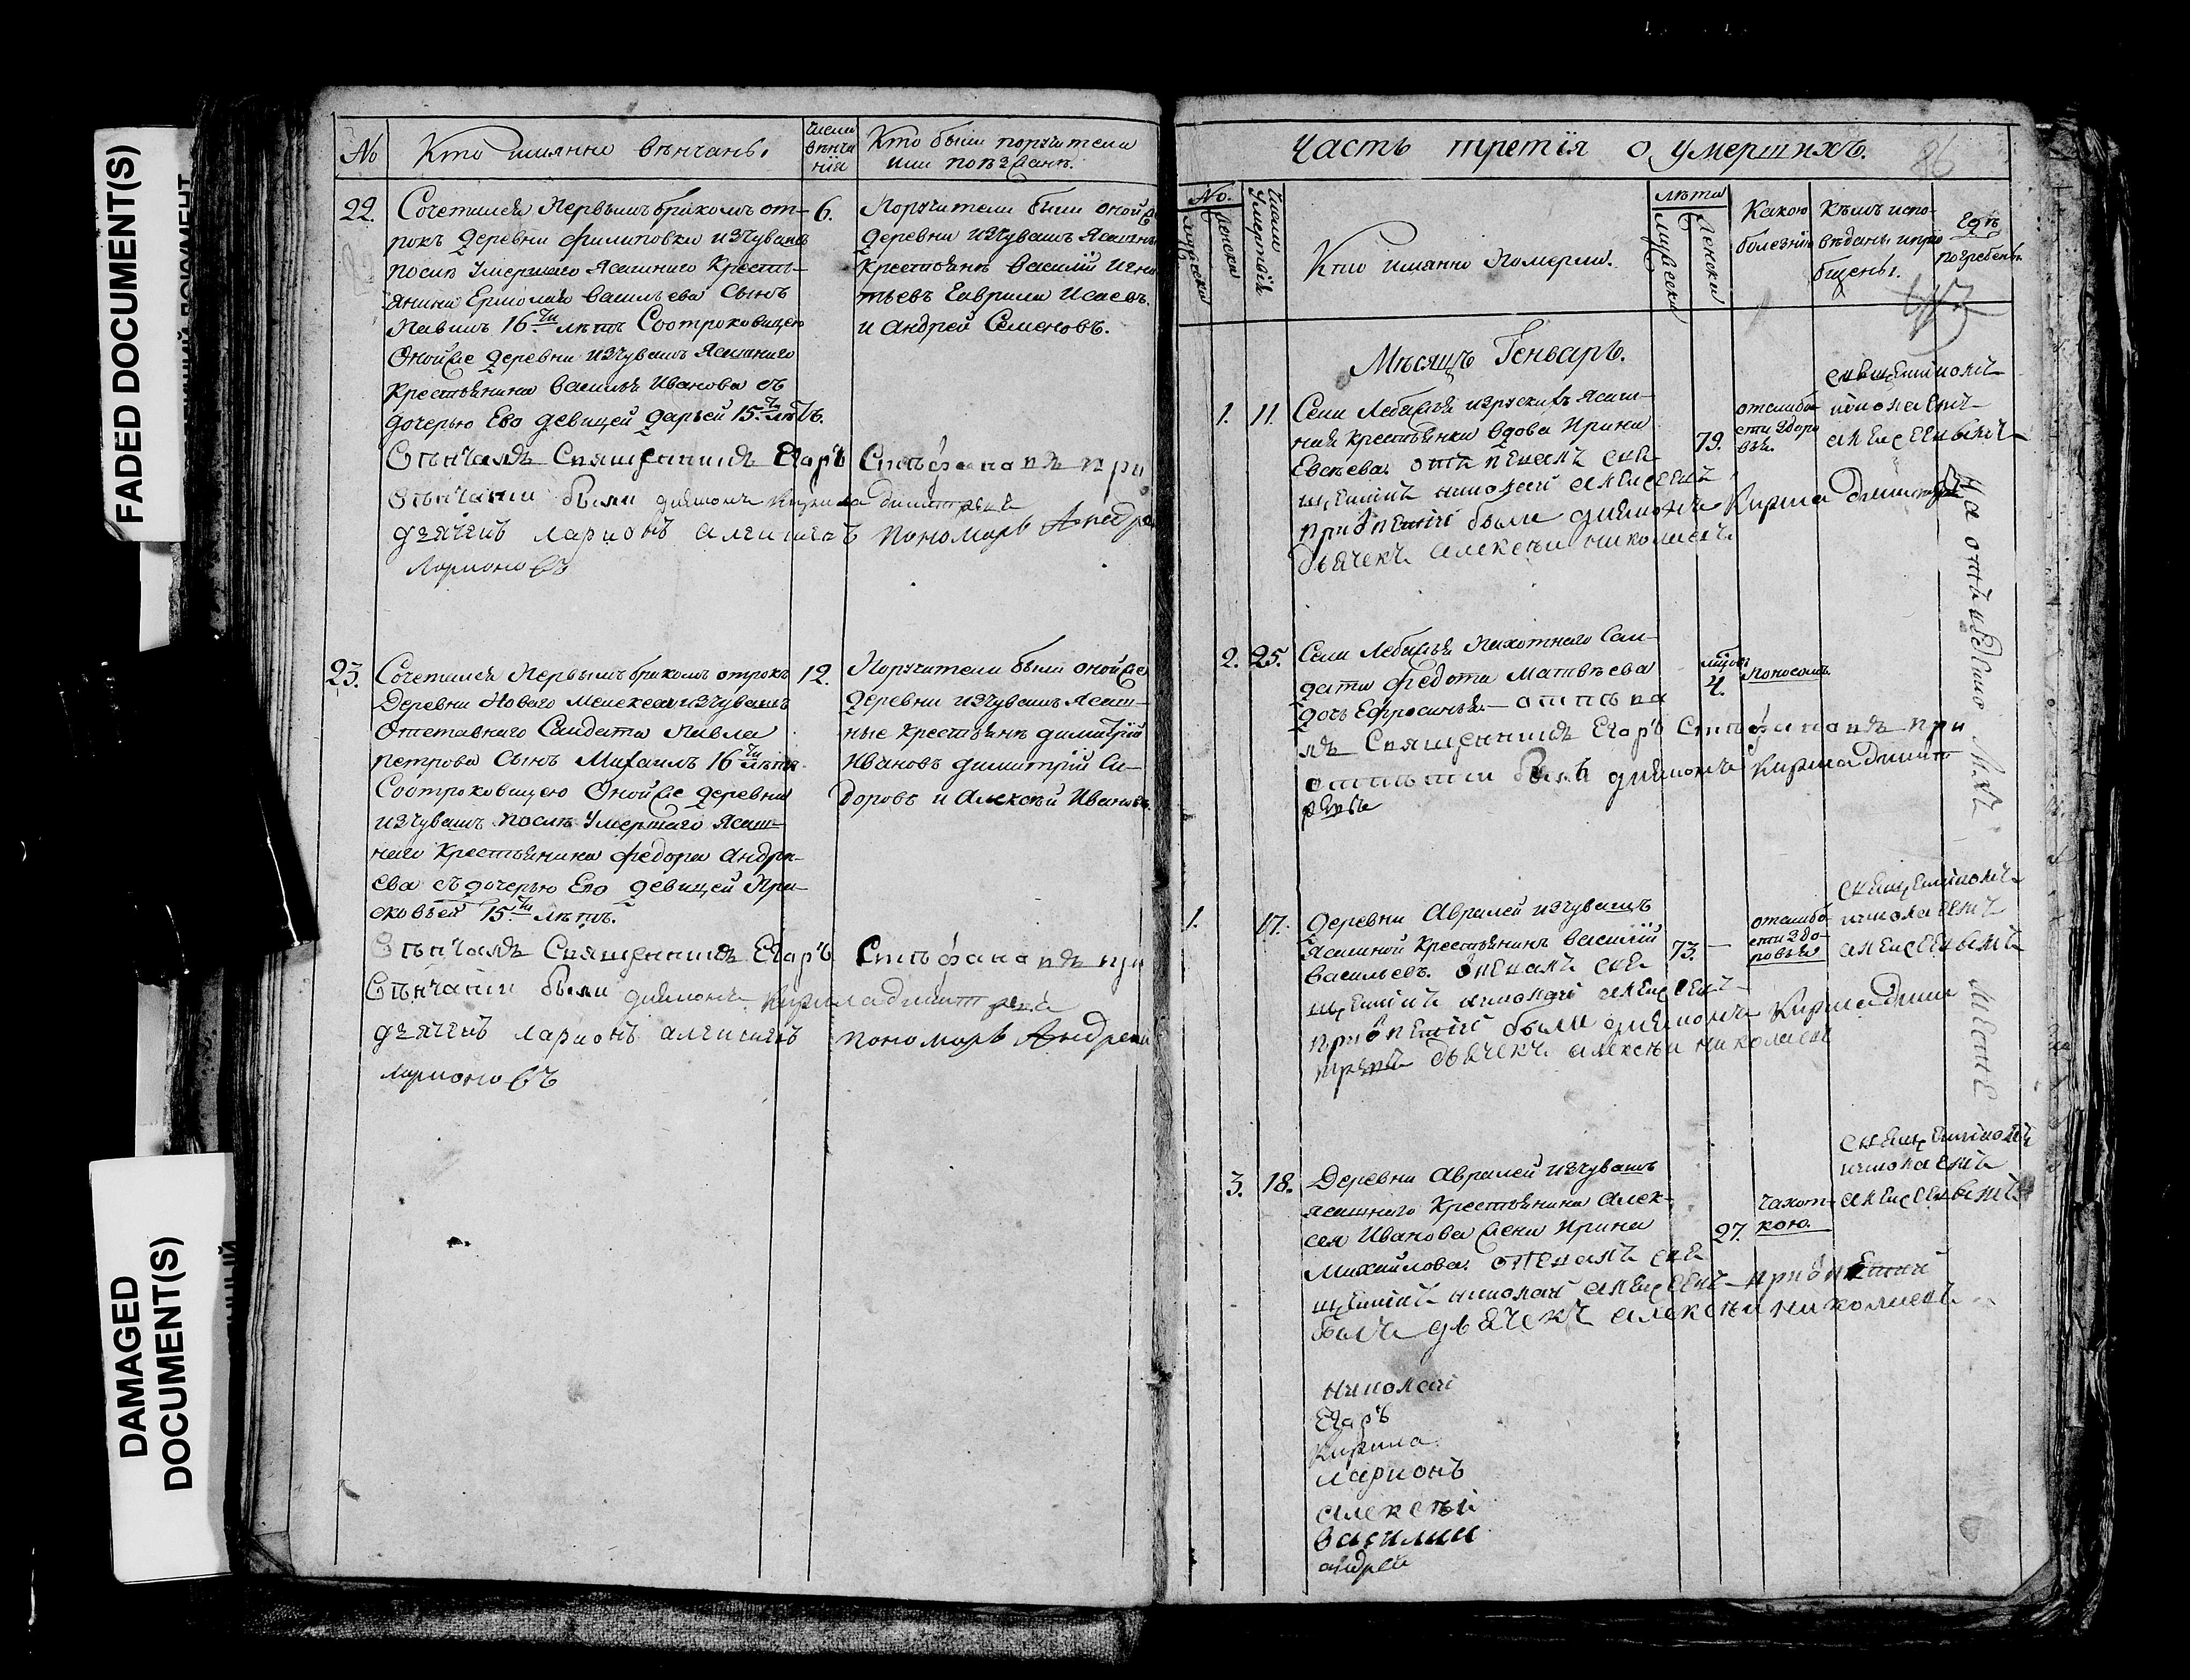 FADED DOCUMENT(S)
DAMAGED
DOCUMENT(S)
№
Кто имянно вѣнчаны.
Числа
вѣнча
нія
Кто были поручители
или поѣзжанѣ.
22.
Сочетался первымъ бракомъ от-
рокъ деревни Филиповки изчувашъ
послѣ умершаго ясашнаго кресть-
янина Ермолая Васильева сынъ
Павилъ 16ти лѣтъ Соотроковицею
Оной же деревни изчувашъ ясашнаго
крестьянина Василья Иванова съ
дочерью Ево девицей Дарьей 15ти лѣтъ.
Вѣнчалъ Священникъ Егоръ Стѣфановъ при
Вѣнчаніи были диаконъ Кирила Димитрѣевъ
дьячекъ Ларионъ Алексѣевъ пономарь Андрей
Ларионовъ
6.
Поручители были оной же
деревни изчувашъ ясашные
крестьянѣ Василій Игна
тьевъ Гаврила Исаевъ
и Андрей Семеновъ.
23.
Сочетался первымъ бракомъ отрокъ
Деревни Новаго Мелекеса изчувашъ
Отставнаго Салдата Павла
Петрова Сынъ Михаилъ 16ти лѣтъ
Соотроковицею Оной же деревни
изчувашъ послѣ умершаго ясаш-
наго крестьянина Федора Андре-
ева съ дочерью Ево девицей Пра-
сковьей 15ти лѣтъ.
Вѣнчалъ Священникъ Егоръ Стѣфановъ при
Вѣнчаніи были диаконъ Кирила Димитрѣевъ
дьячекъ Ларионъ Алексѣевъ пономарь Андреи
Ларионовъ
12.
Поручители были оной же
деревни изчувашъ ясаш-
ные крестьянѣ Димитрій
Ивановъ Димитрій Си-
доровъ и Алексѣй Ивановъ
Часть третія о умершихъ.
86
№.
мужеска
женска
Числа умертвія
Кто имянно померли.
лѣта
мужеска
женска
Какою
болезнію
Кѣмъ испо-
вѣданы и прио
бщены.
Гдѣ
погребены.
Мѣсяцъ Генварь.
1.
11.
Села Лебяжья изрускихъ ясаш-
ная крестьянка вдова Ирина
Евсѣева. отпевалъ свя
щенникъ Николай Алексеевъ
при опении были диаконъ Кирила Димитревъ
дьячекъ Алексѣй Николаевъ
79.
отслабо
сти здоро
вья.
священникомъ
Николаемъ
Алексеевымъ
На отведеномъ месте
2.
25.
Села Лебяжья пихотнаго Сал-
дата Федота Матвѣева
дочь Ефросинья отпѣва
лъ Священникъ Егоръ Стѣфановъ при
отпѣтии былъ диаконъ Кирила Димит
рѣевъ
4.
поносомъ.
1.
17.
Деревни Авралей изчувашъ
ясашной крестьянинъ Василій
Васильевъ. опевалъ свя
щенникъ Николай Алексеевъ
при опении были диаконъ Кирила Дими
тревъ дьячекъ Алексѣй Николаевъ
73.
отслабо
сти здо-
ровья
священникомъ
Николаемъ
Алексеевымъ
3.
18.
Деревни Авралей изчувашъ
ясашнаго крестьянина Алек-
сея Иванова жена Ирина
Михайлова. опевалъ свя
щенникъ Николай Алексеевъ при опении
былъ дьячекъ Алексѣй Николаевъ
27.
чахот-
кою.
священникомъ
Николаемъ
Алексеевымъ
Николай
Егоръ
Кирила
Ларионъ
Алексѣй
Василии
Андрей